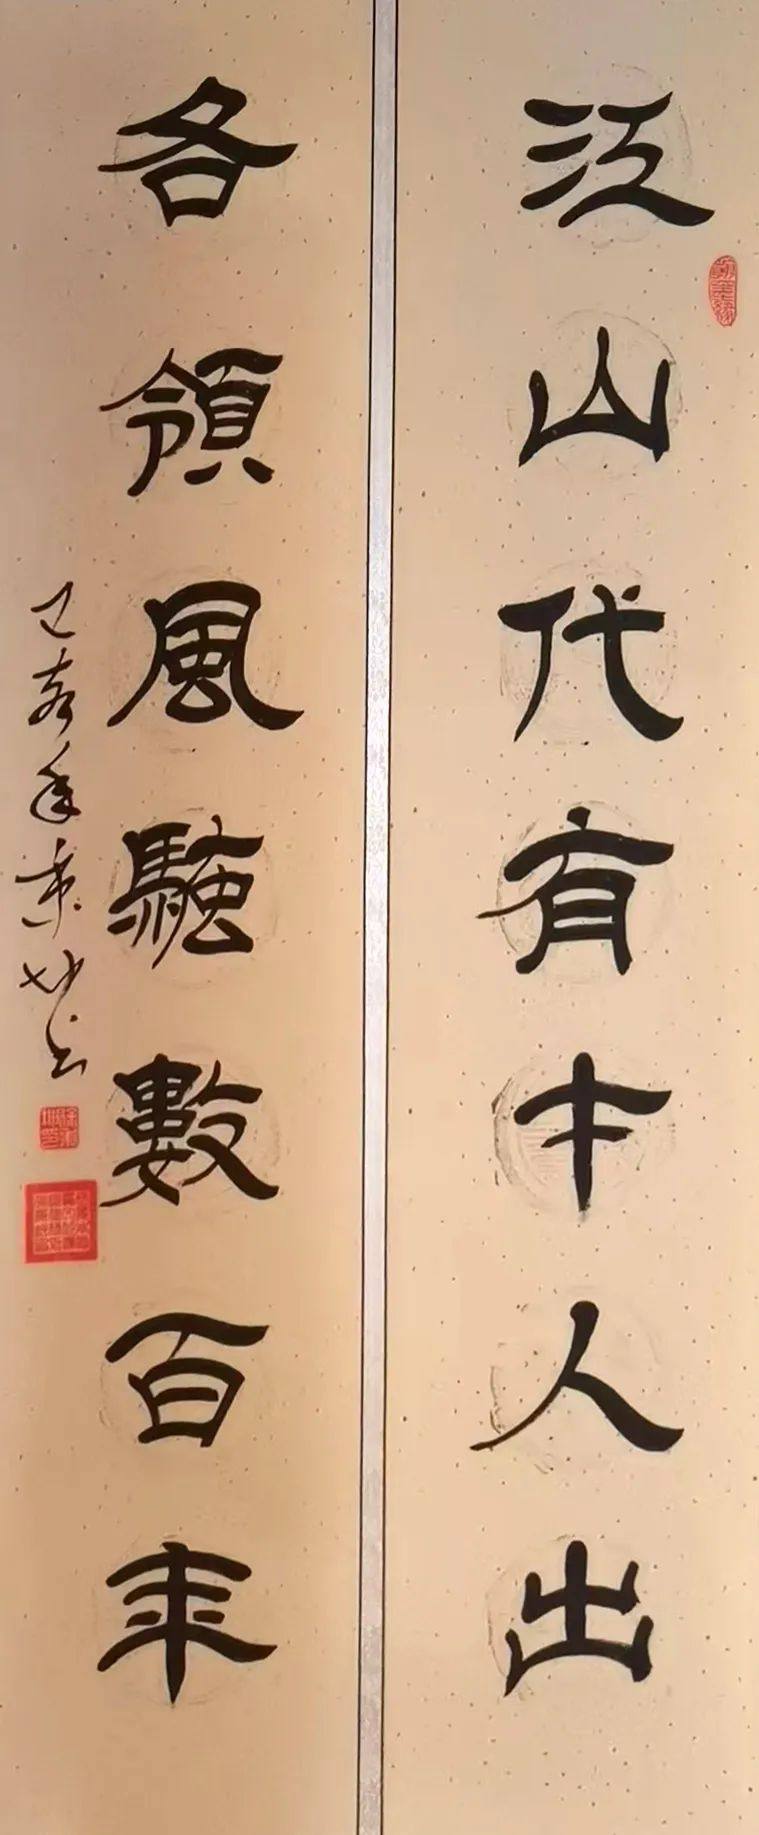 江山代有才人出
各領風騷數百年
己亥年